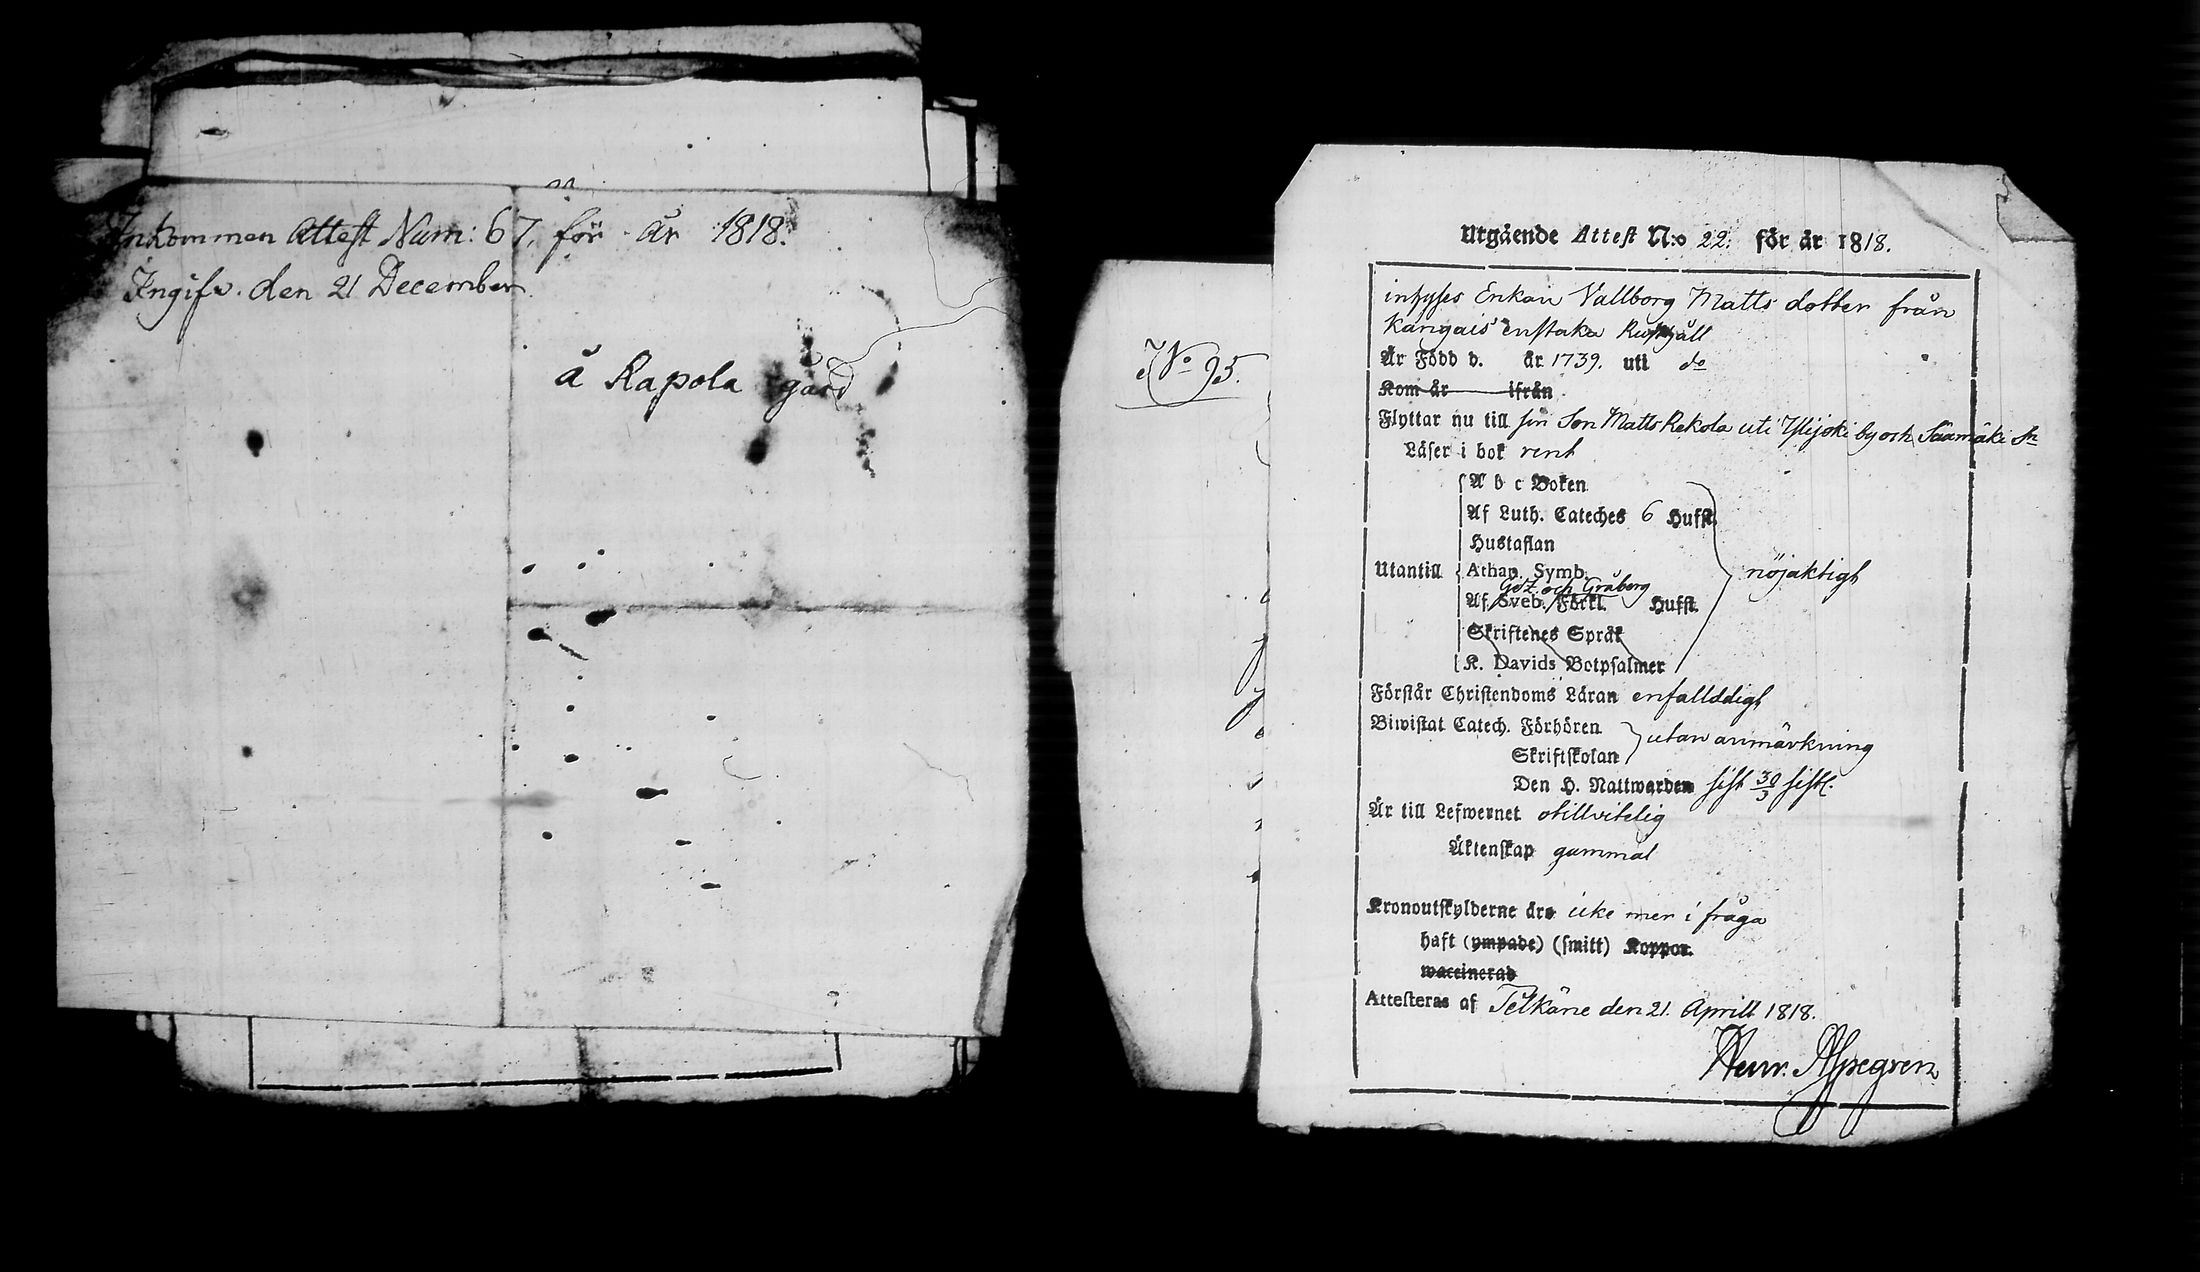 Inkommen Attest Num: 67, för år 1818.
Ingifv. den 21 December
å Rapola gård
No 95.
Utgående Attest N:o 22. för år 1818.
Enkan Vallborg Matts dotter från
Kangais enstaka
Är Född d. år 1739. uti do
Kom år ifrån
Flyttar nu till sin Son Matts Rekola uti by och Säämäki Sn
Läser i bok rent
A b c Boken
Af Luth. Cateches 6 Hufst.
Hustaflan
Utantill Athan. Symb. nöjaktigt
och Gråberg
Af Sveb. Förkl. Hufst.
Skriftenes Språk
K. Davids Botpsalmer
Förstår Christendoms Läran enfalldigt
Biwistat Catech. Förhören utan anmärkning
Skriftskolan
Den H. Nattwarden sist 30/3 sistl.
Är till Lefwernet otillvitelig
Äktenskap gammal
Kronoutskylderne äro icke mer i fråga
haft (ympade) (smitt) Koppor.
waccinerad
Attesteras af Pelkäne den 21. Aprill 1818.
Henr.